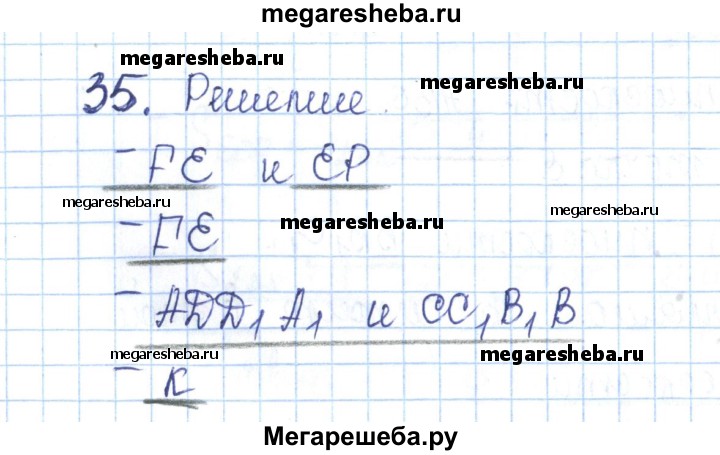 megaresheba.ru
megaresheba.ru
35. Решение
megaresheba.ru
- FE и EP
megaresheba.ru
megaresheba.ru
- FE
megaresheba.ru
- ADD₁A₁ и CC₁B₁B
megaresheba.ru
megaresheba.ru
- K
Мегарешеба.ру